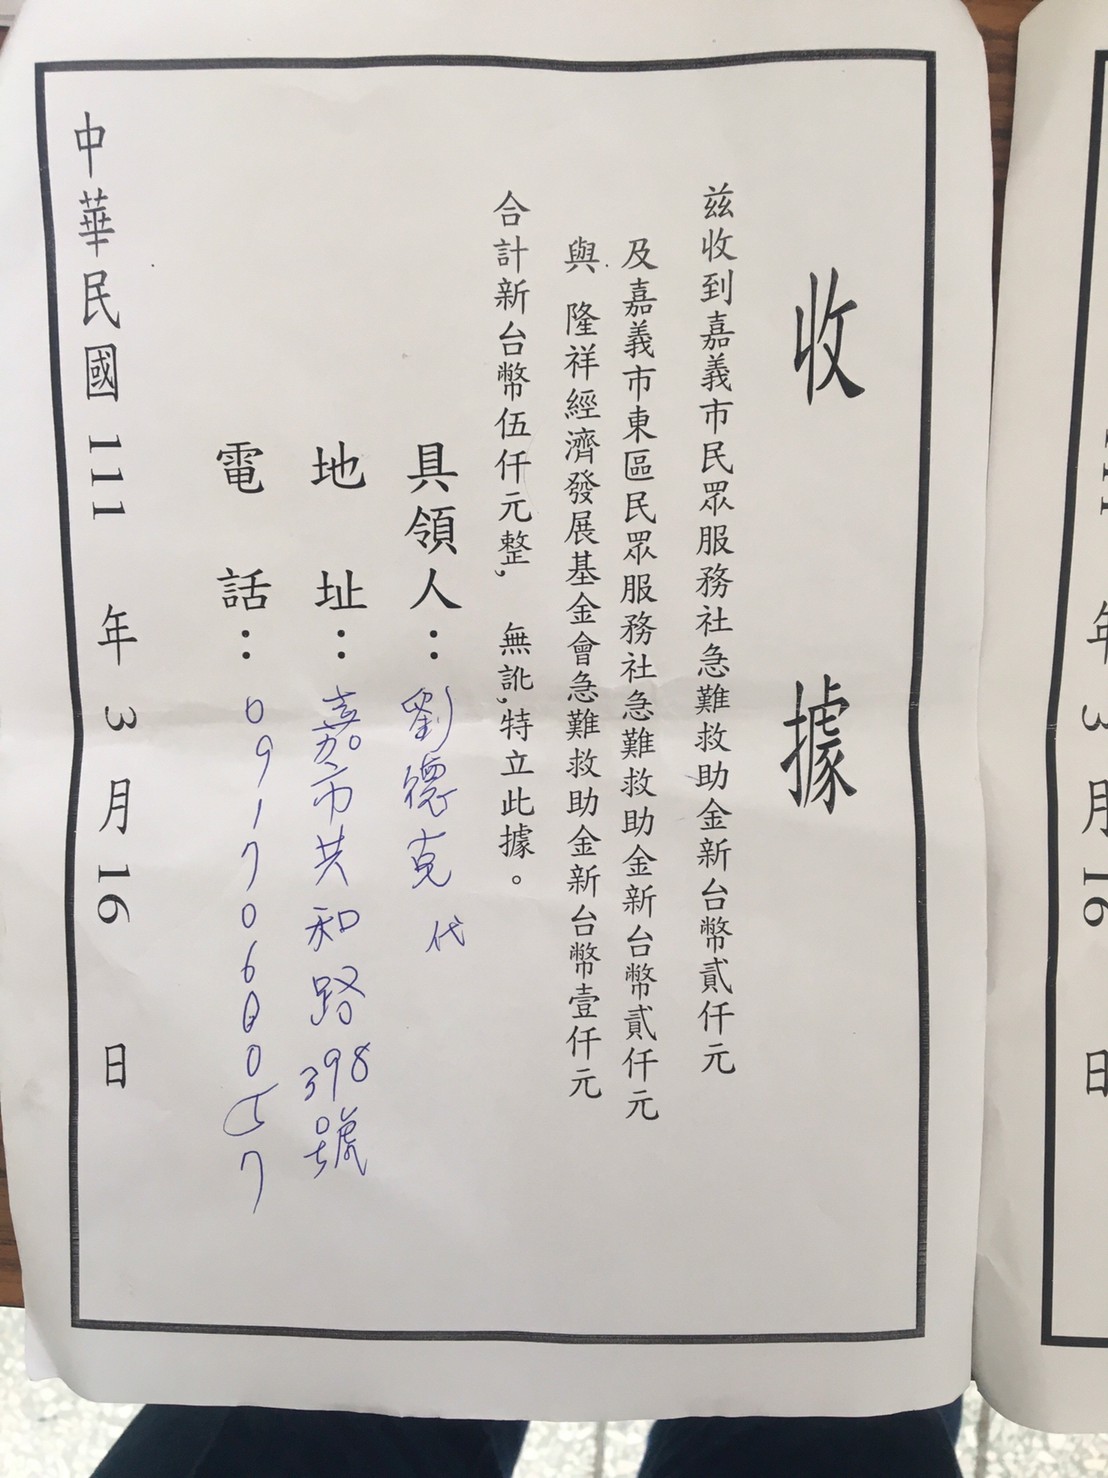 收據
茲收到嘉義市民眾服務社急難救助金新台幣貳仟元
及嘉義市東區民眾服務社急難救助金新台幣貳仟元
與 隆祥經濟發展基金會急難救助金新台幣壹仟元
合計新台幣伍仟元整, 無訛,特立此據。
具領人：劉德克 代
地址：嘉市共和路398號
電話：0917060057
中華民國 111 年 3 月 16 日